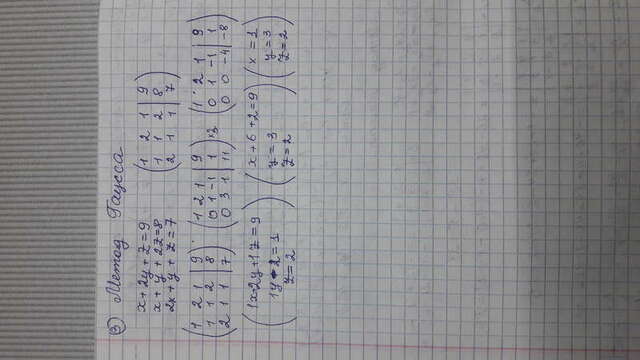 ③ Метод Гаусса
x + 2y + z = 9
x + y + 2z = 8
2x + y + z = 7
1 2 1 | 9
1 1 2 | 8
2 1 1 | 7
1 2 1 | 9
1 1 2 | 8
2 1 1 | 7
1 2 1 | 9
0 1 -1 | 1 ·3
0 3 1 | 11
1 2 1 | 9
0 1 -1 | 1
0 0 -4 | -8
1x+2y+1z=9
1y-z=1
z=2
x+6+2=9
y=3
z=2
x=1
y=3
z=2